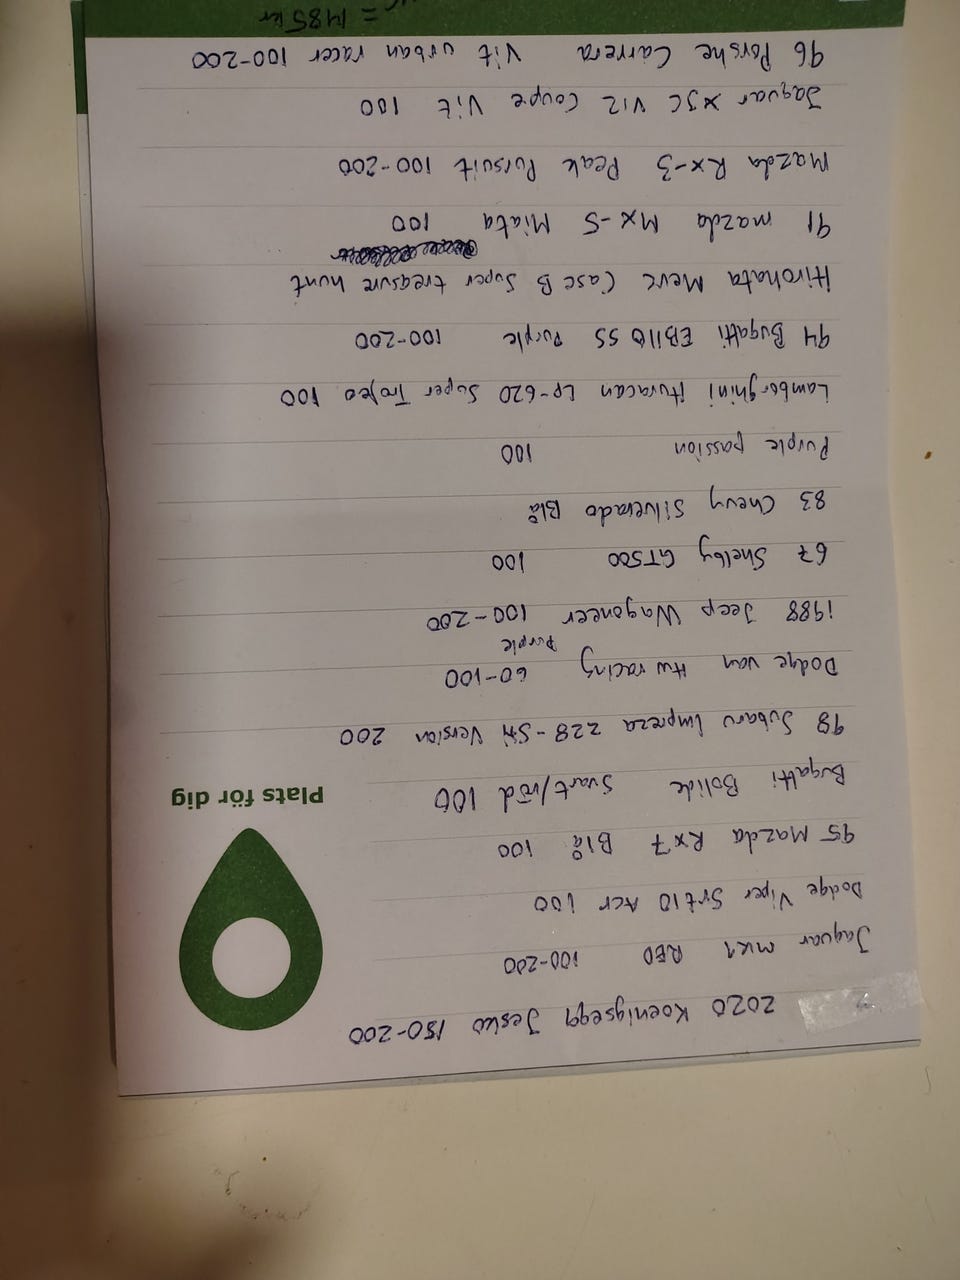 2020 Koenigsegg Jesko 150-200
Jaguar MK1 RED 100-200
Dodge Viper Srt10 Acr 100
95 Mazda Rx7 Blå 100
Bugatti Bolide Svart/röd 100
Plats för dig
98 Subaru Impreza 22B-Sti Version 200
Dodge van Hw racing 60-100
Purple
1988 Jeep Wagoneer 100-200
67 Shelby GT500 100
83 Chevy Silverado Blå
Purple passion 100
Lamborghini Huracan Lp-620 Super Trofeo 100
94 Bugatti EB110 SS Purple 100-200
Hirohata Merc Case B Super treasure hunt
91 mazda MX-5 Miata 100
Mazda Rx-3 Peak Pursuit 100-200
Jaguar XJC V12 Coupe Vit 100
96 Porshe Carrera Vit urban racer 100-200
= 1485 kr